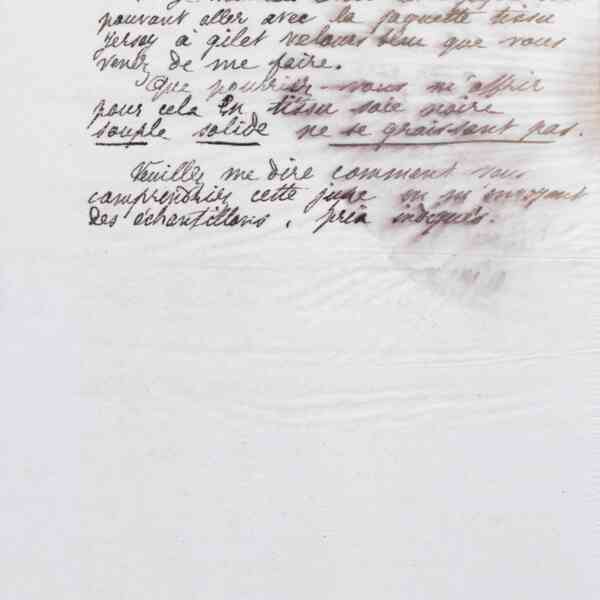 pouvant aller avec la jaquette tissu
jersey à gilet velours bleu que vous
venez de me faire.
Que pourriez-vous m'offrir
pour cela en tissu soie noire
souple solide ne se graissant pas.
Veuillez me dire comment vous
comprendriez cette jupe en m'envoyant
des échantillons, prix indiqués.